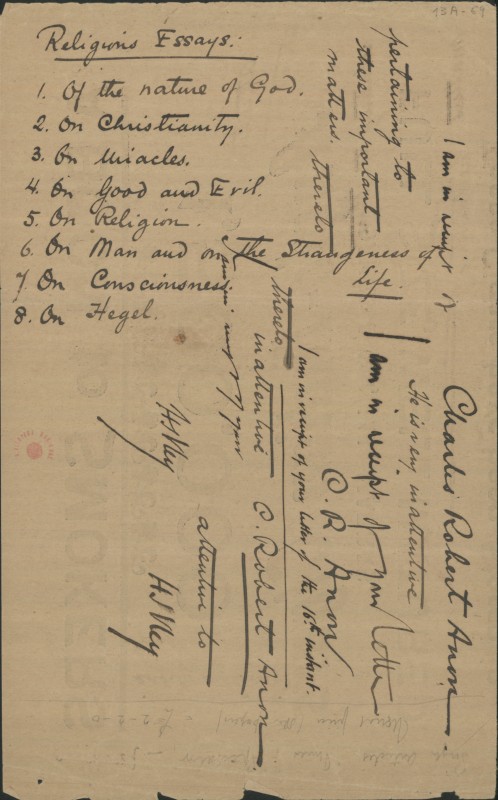 13A-69
Religious Essays:
1. Of the nature of God.
2. On Christianity.
3. On Miracles.
4. On Good and Evil.
5. On Religion.
6. On Man and on the Strangeness of
Life.
7. On Consciousness.
8. On Hegel.
I am in receipt of
pertaining to
these important
matters.
thereto
Charles Robert Anon.
He is very inattentive
I am in receipt of your letter
C. R. Anon
I am in receipt of your letter of the 16th instant.
thereto
inattentive C. Robert Anon.
receipt of your
attentive to